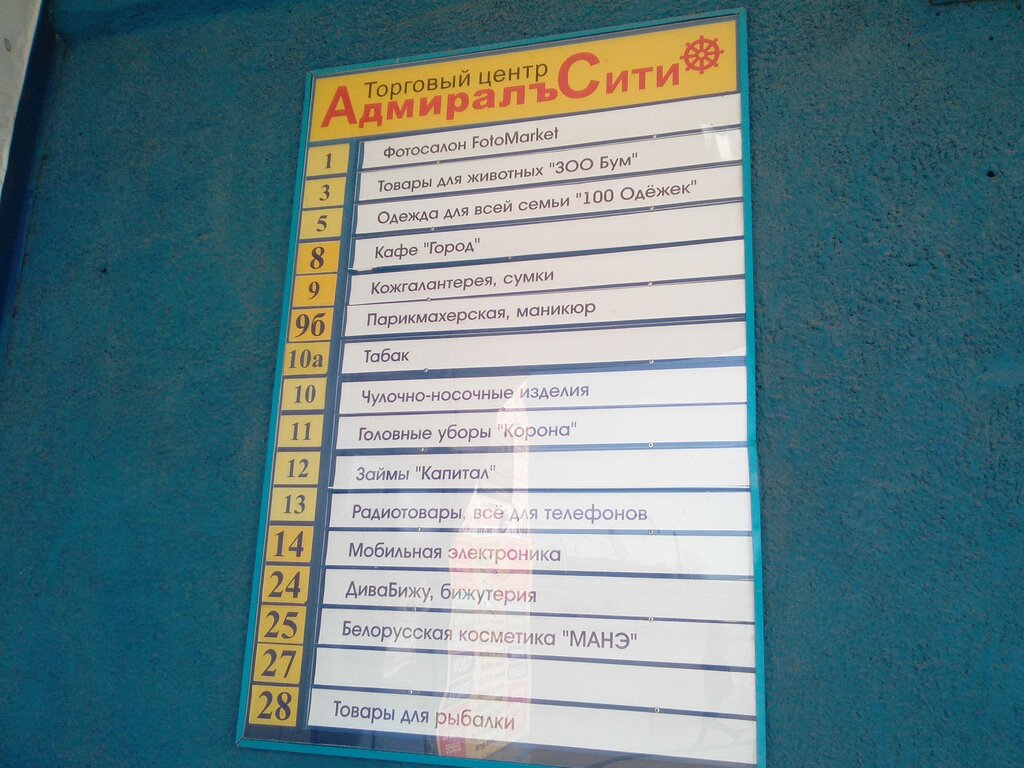 Торговый центр
АдмиралъСити
1 Фотосалон FotoMarket
3 Товары для животных "ЗОО Бум"
5 Одежда для всей семьи "100 Одёжек"
8 Кафе "Город"
9 Кожгалантерея, сумки
9б Парикмахерская, маникюр
10а Табак
10 Чулочно-носочные изделия
11 Головные уборы "Корона"
12 Займы "Капитал"
13 Радиотовары, всё для телефонов
14 Мобильная электроника
24 ДиваБижу, бижутерия
25 Белорусская косметика "МАНЭ"
27
28 Товары для рыбалки